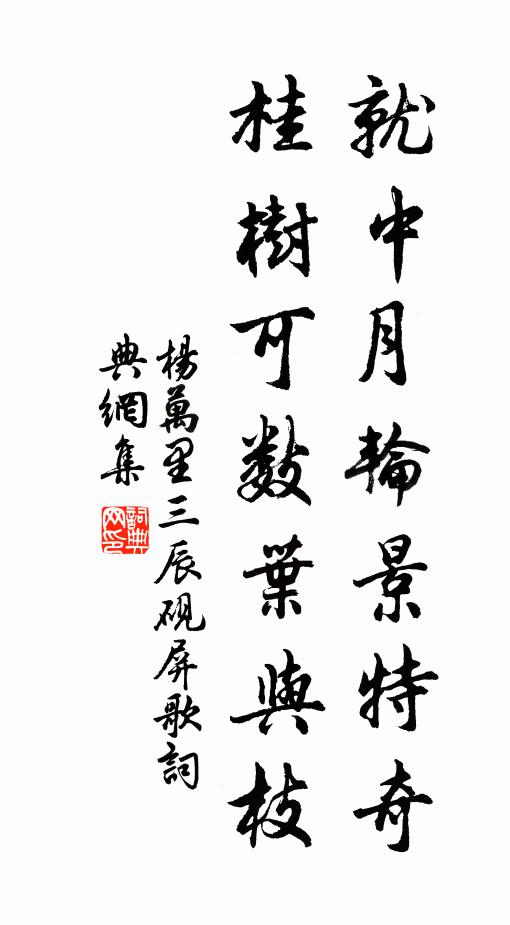 就中月輪景特奇
桂樹可數葉與枝
楊萬里三辰硯屏歌詞
典網集
詞典
网印